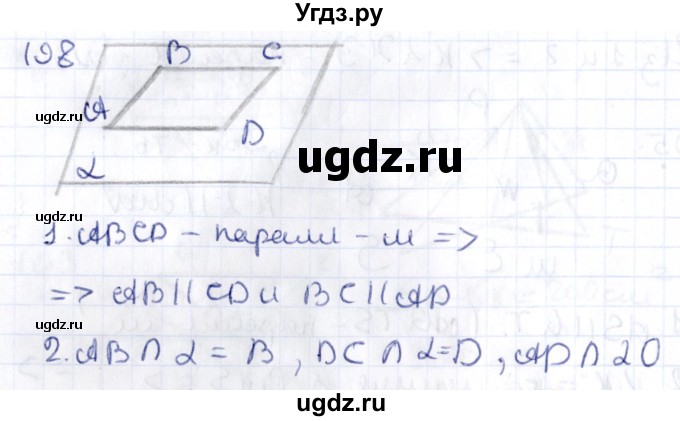 Угдз.ру
198
B C
ugdz.ru
A
D
ugdz.ru
ugdz.ru
α
1. ABCD - паралл - м =>
=> AB || CD и BC || AD
ugdz.ru
ugdz.ru
2. AB ∩ α = B, DC ∩ α = D, AD ∩ α O
ugdz.ru